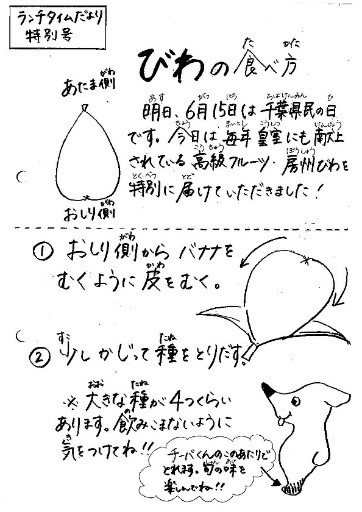 ランチタイムだより
特別号
びわの食べ方
あたま側
おしり側
明日、6月15日は千葉県民の日
です。今日は毎年皇室にも献上
されている高級フルーツ・房州びわを
特別に届けていただきました!
① おしり側から バナナを
むくように皮をむく。
② 少しかじって種をとりだす。
※大きな種が4つくらい
あります。飲みこまないように
気をつけてね!!
チーバくんのこのあたりで
とれます。旬の味を
楽しんでね!!